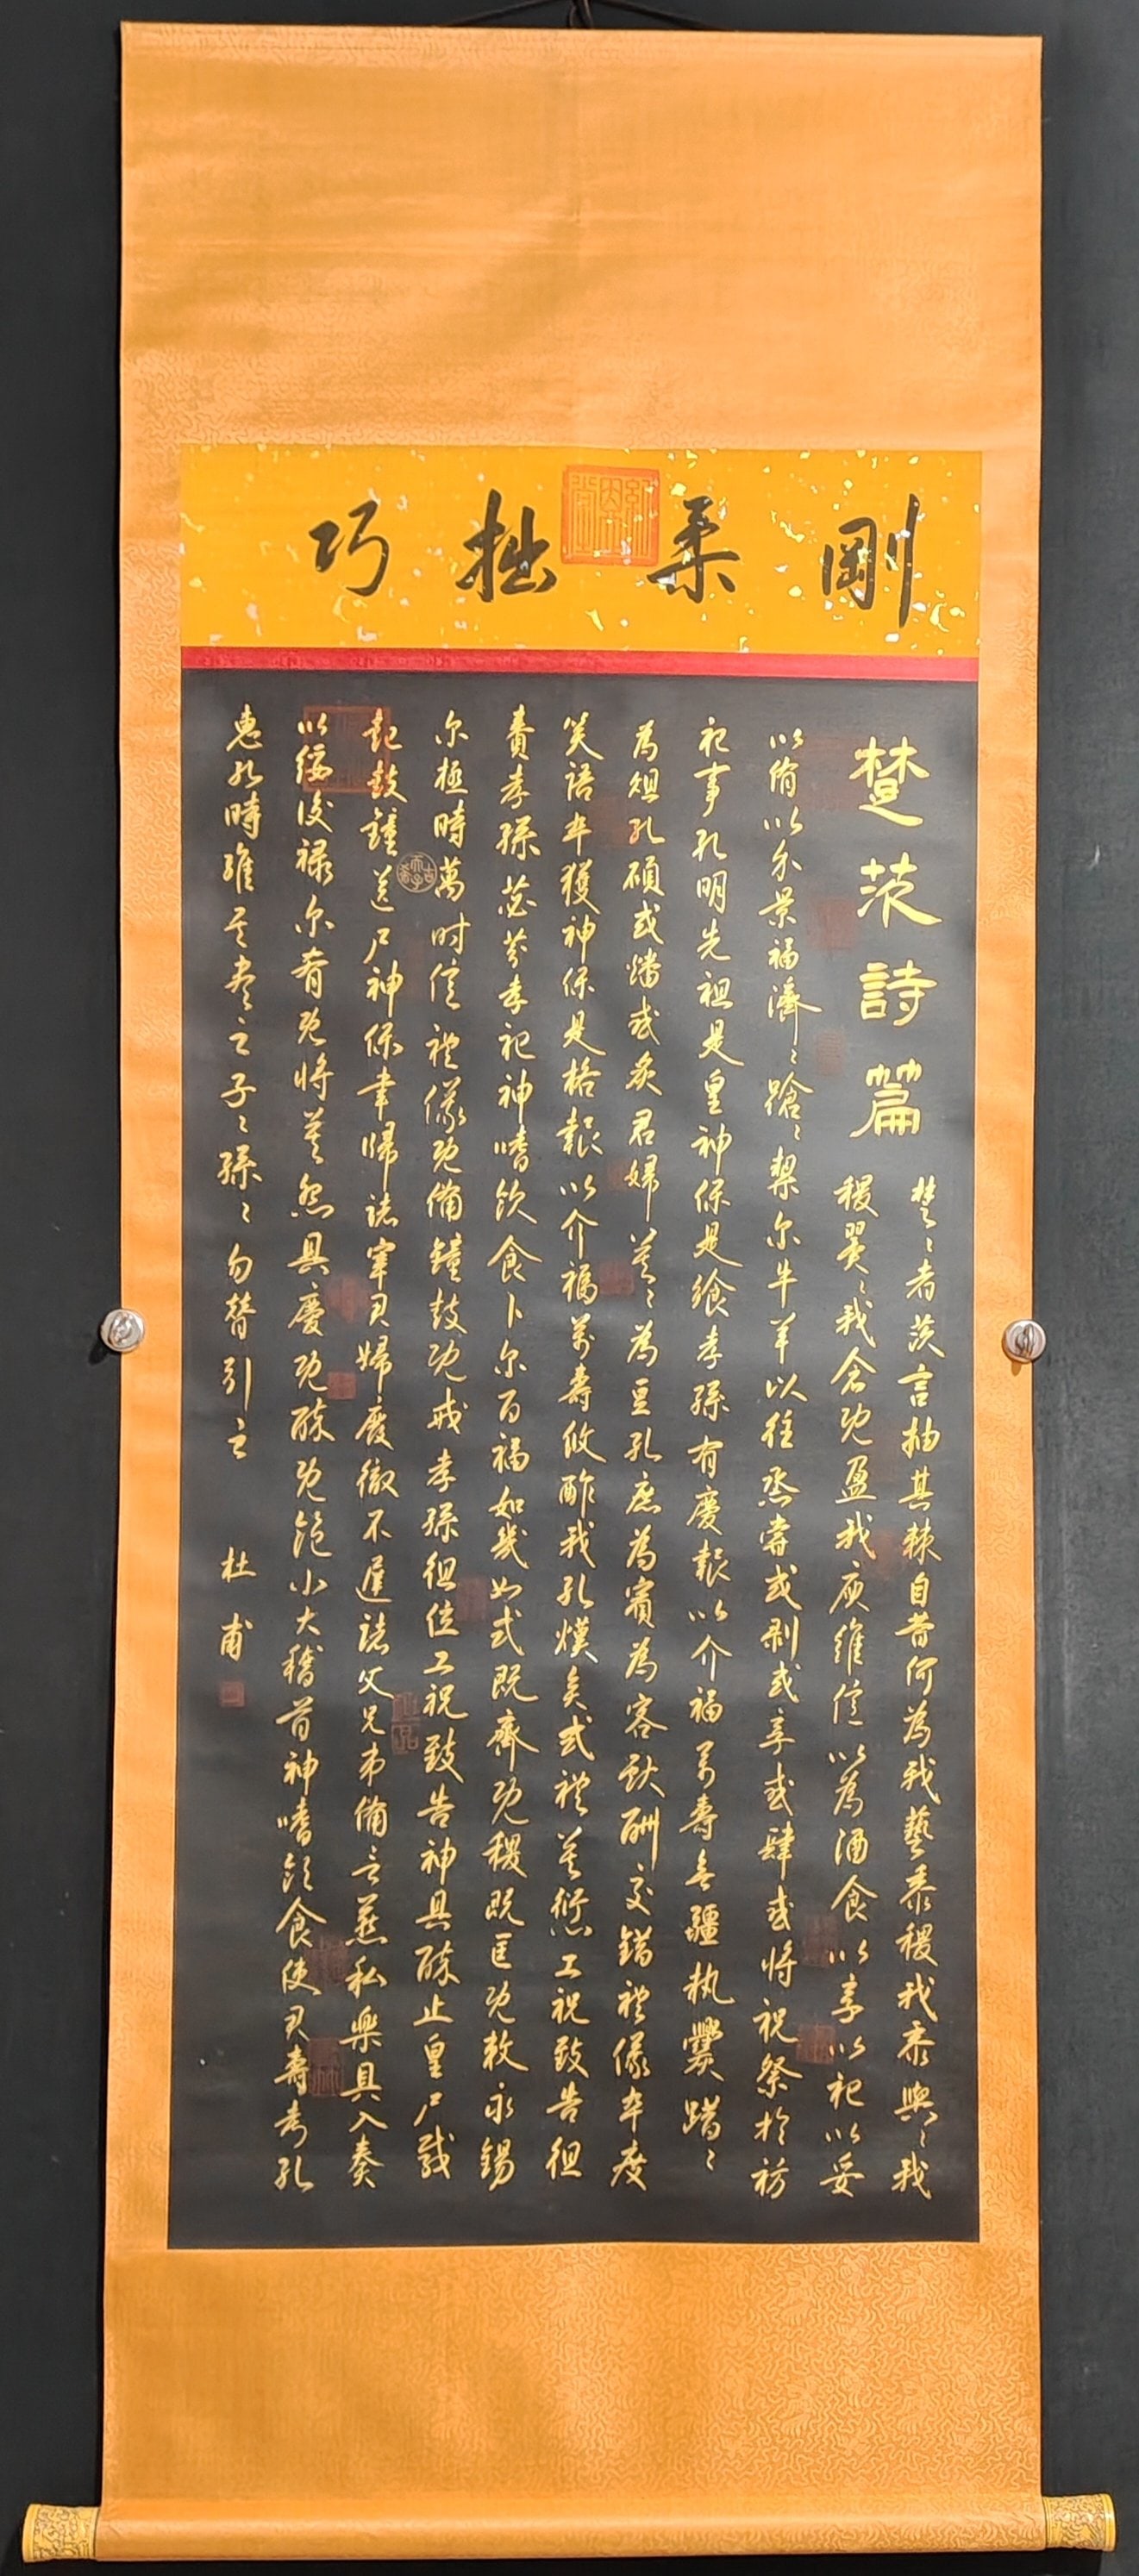 剛柔拙巧
楚茨詩篇
楚〻者茨言抽其棘自昔何為我藝黍稷我黍與〻我
稷翼〻我倉既盈我庾維億以為酒食以享以祀以妥
以侑以介景福濟〻蹌〻絜尔牛羊以往烝嘗或剝或享或肆或將祝祭於祊
祀事孔明先祖是皇神保是饗孝孫有慶報以介福万壽無疆執爨踖〻
為俎孔碩或燔或炙君婦莫〻為豆孔庶為賓為客獻酬交錯禮儀卒度
笑語卒獲神保是格報以介福萬壽攸酢我孔熯矣式禮莫愆工祝致告徂
賚孝孫苾芬孝祀神嗜飲食卜尔百福如幾如式既齊既稷既匡既敕永錫
尔極時萬时億禮儀既備鐘鼓既戒孝孫徂位工祝致告神具醉止皇尸載
起鼓鐘送尸神保聿歸諸宰君婦廢徹不遲諸父兄弟備言燕私樂具入奏
以綏後祿尔肴既將莫怨具慶既醉既飽小大稽首神嗜飲食使君壽考孔
惠孔時維其盡之子〻孫〻勿替引之
杜甫